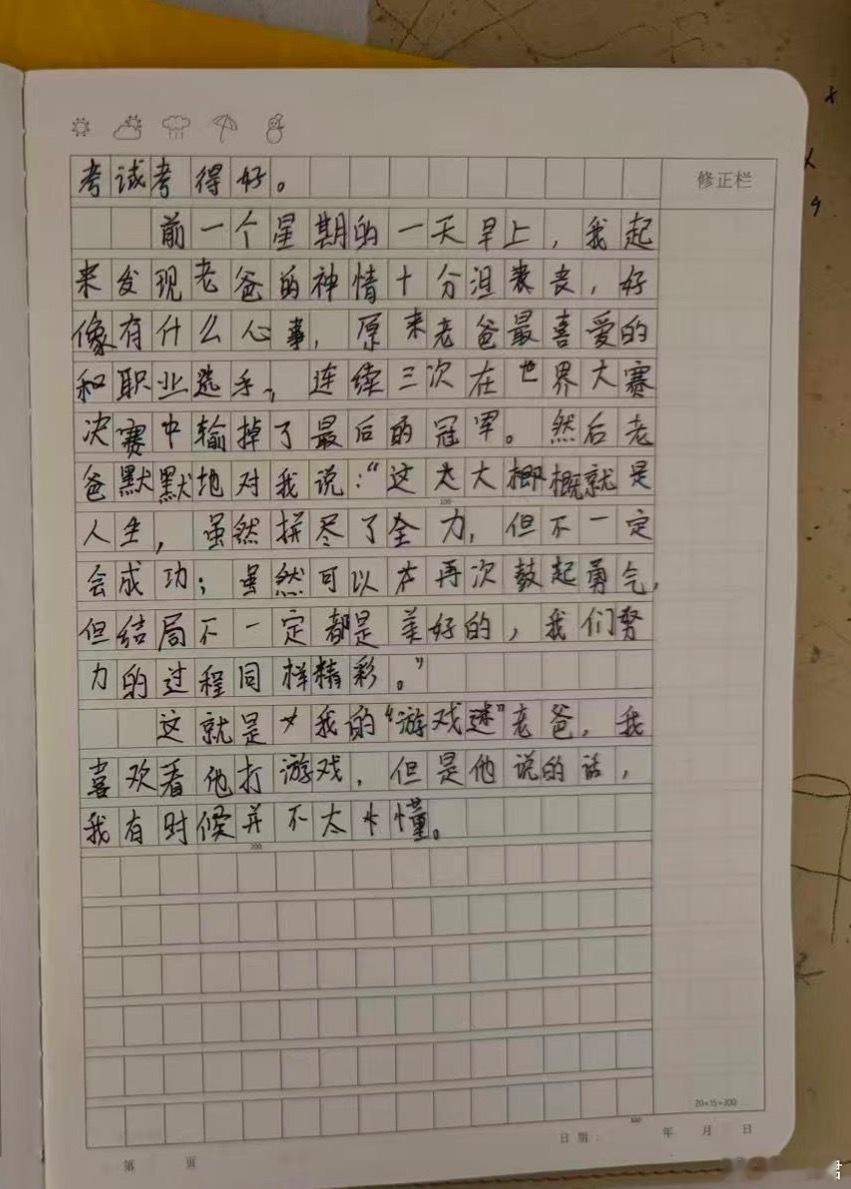 修正栏
考试考得好。
前一个星期的一天早上，我起
来发现老爸的神情十分沮丧，好
像有什么心事，原来老爸最喜爱的
和职业选手，连续三次在世界大赛
决赛中输掉了最后的冠军。然后老
爸默默地对我说：“这大概就是
人生，虽然拼尽了全力，但不一定
会成功；虽然可以再次鼓起勇气，
但结局不一定都是美好的，我们努
力的过程同样精彩。”
100
这就是我的“游戏迷”老爸，我
喜欢看他打游戏，但是他说的话，
我有时候并不太懂。
200
20×15=300
300
日期： 年 月 日
第 页